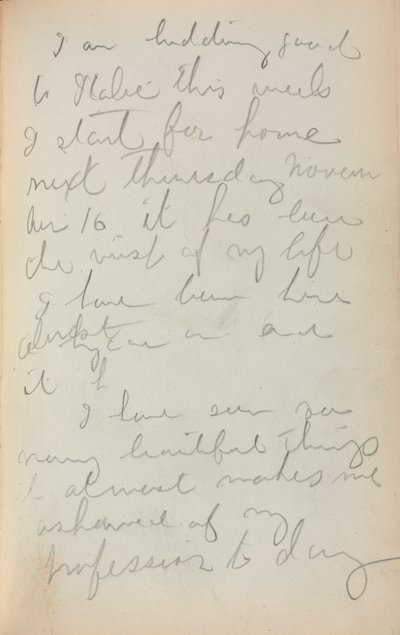 I am bidding good
to Italie this week
I start for home
next Thursday Novem
ber 16 it has been
the visit of my life
I have been here
almost
it
I have seen so
many beautiful things
it almost makes me
ashamed of my
profession to day